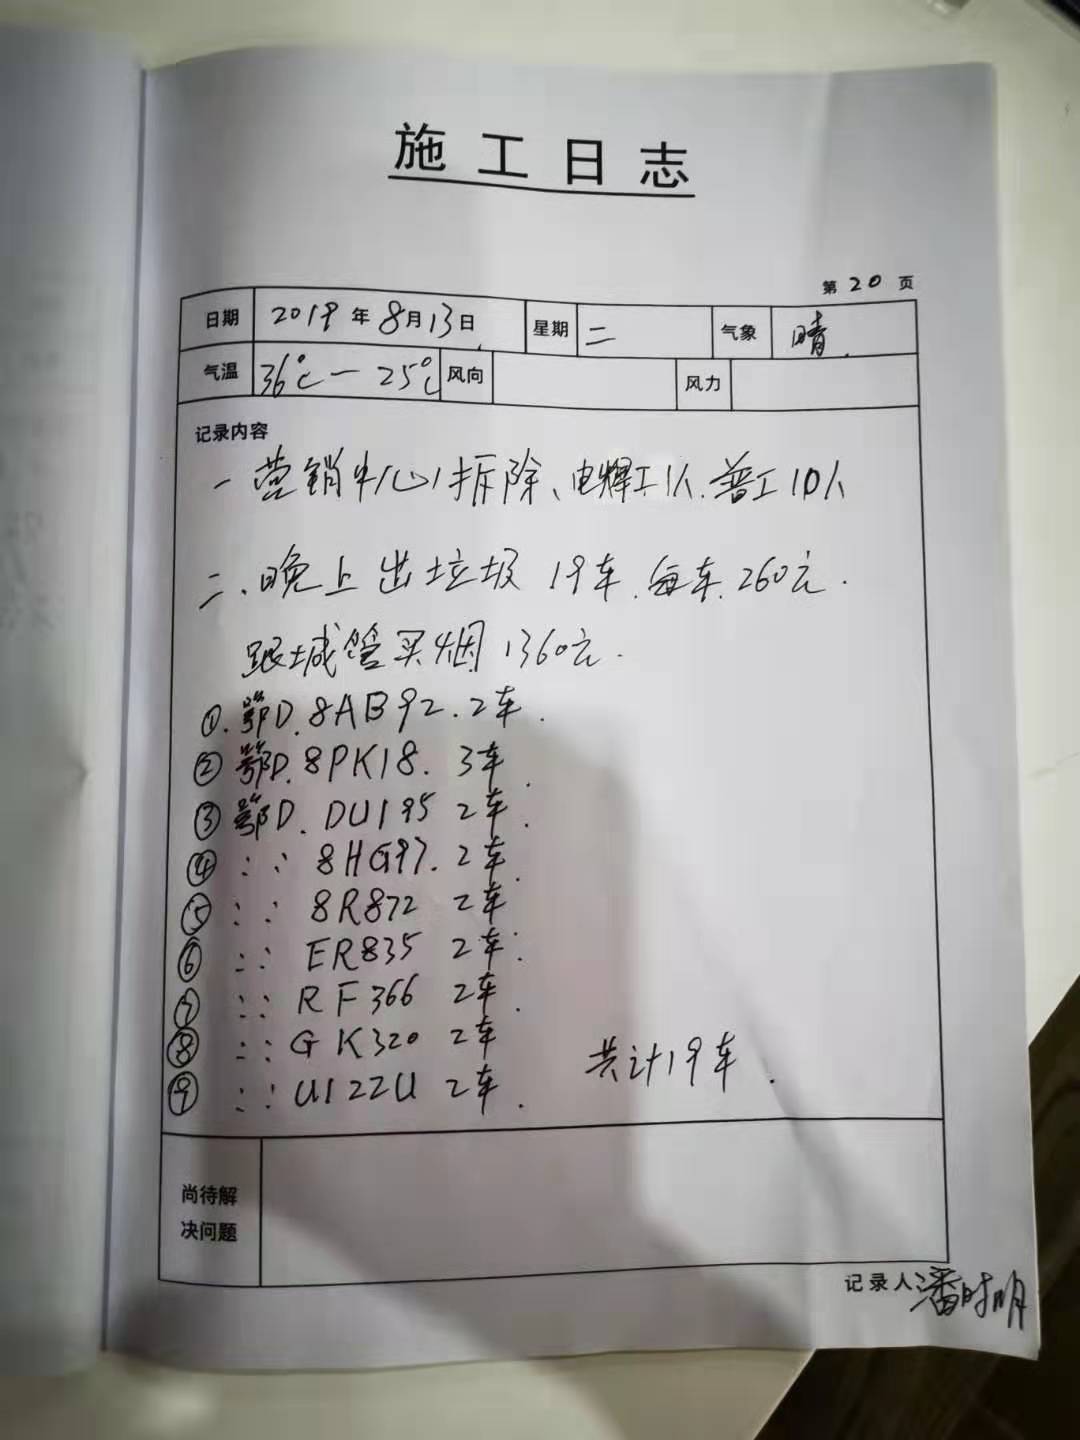 施工日志
第 20 页
日期 2019年8月13日 星期 二 气象 晴.
气温 36℃—25℃ 风向 风力
记录内容
一 营销中心拆除、电焊工1人.普工10人
二、晚上出垃圾 19车.每车.260元.
跟城管买烟 1360元.
①.鄂D.8AB92.2车.
②鄂D.8PK18. 3车.
③鄂D. DU195 2车.
④ :: 8HG97.2车.
⑤ :: 8R872 2车.
⑥ :: ER835 2车.
⑦ :: RF366 2车.
⑧ :: GK320 2车
⑨ :: U122U 2车. 共计19车.
尚待解
决问题
记录人 潘时明